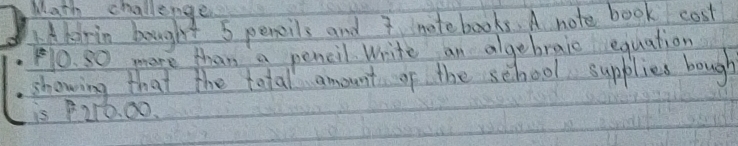 Math challenge
1. Aldrin bought 5 pencils and 7 notebooks. A note book cost
₱10.80 more than a pencil. Write an algebraic equation
showing that the total amount of the school supplies bough
is ₱216.00.